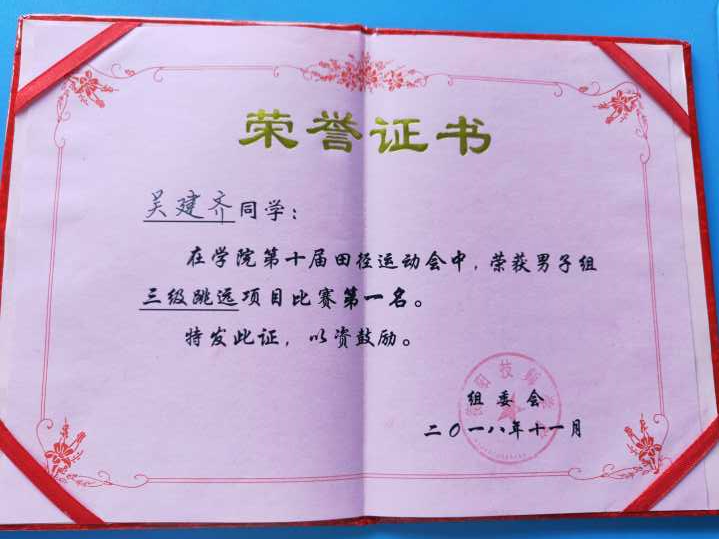 荣誉证书
吴建齐同学：
在学院第十届田径运动会中，荣获男子组
三级跳远项目比赛第一名。
特发此证，以资鼓励。
组委会
二〇一八年十一月